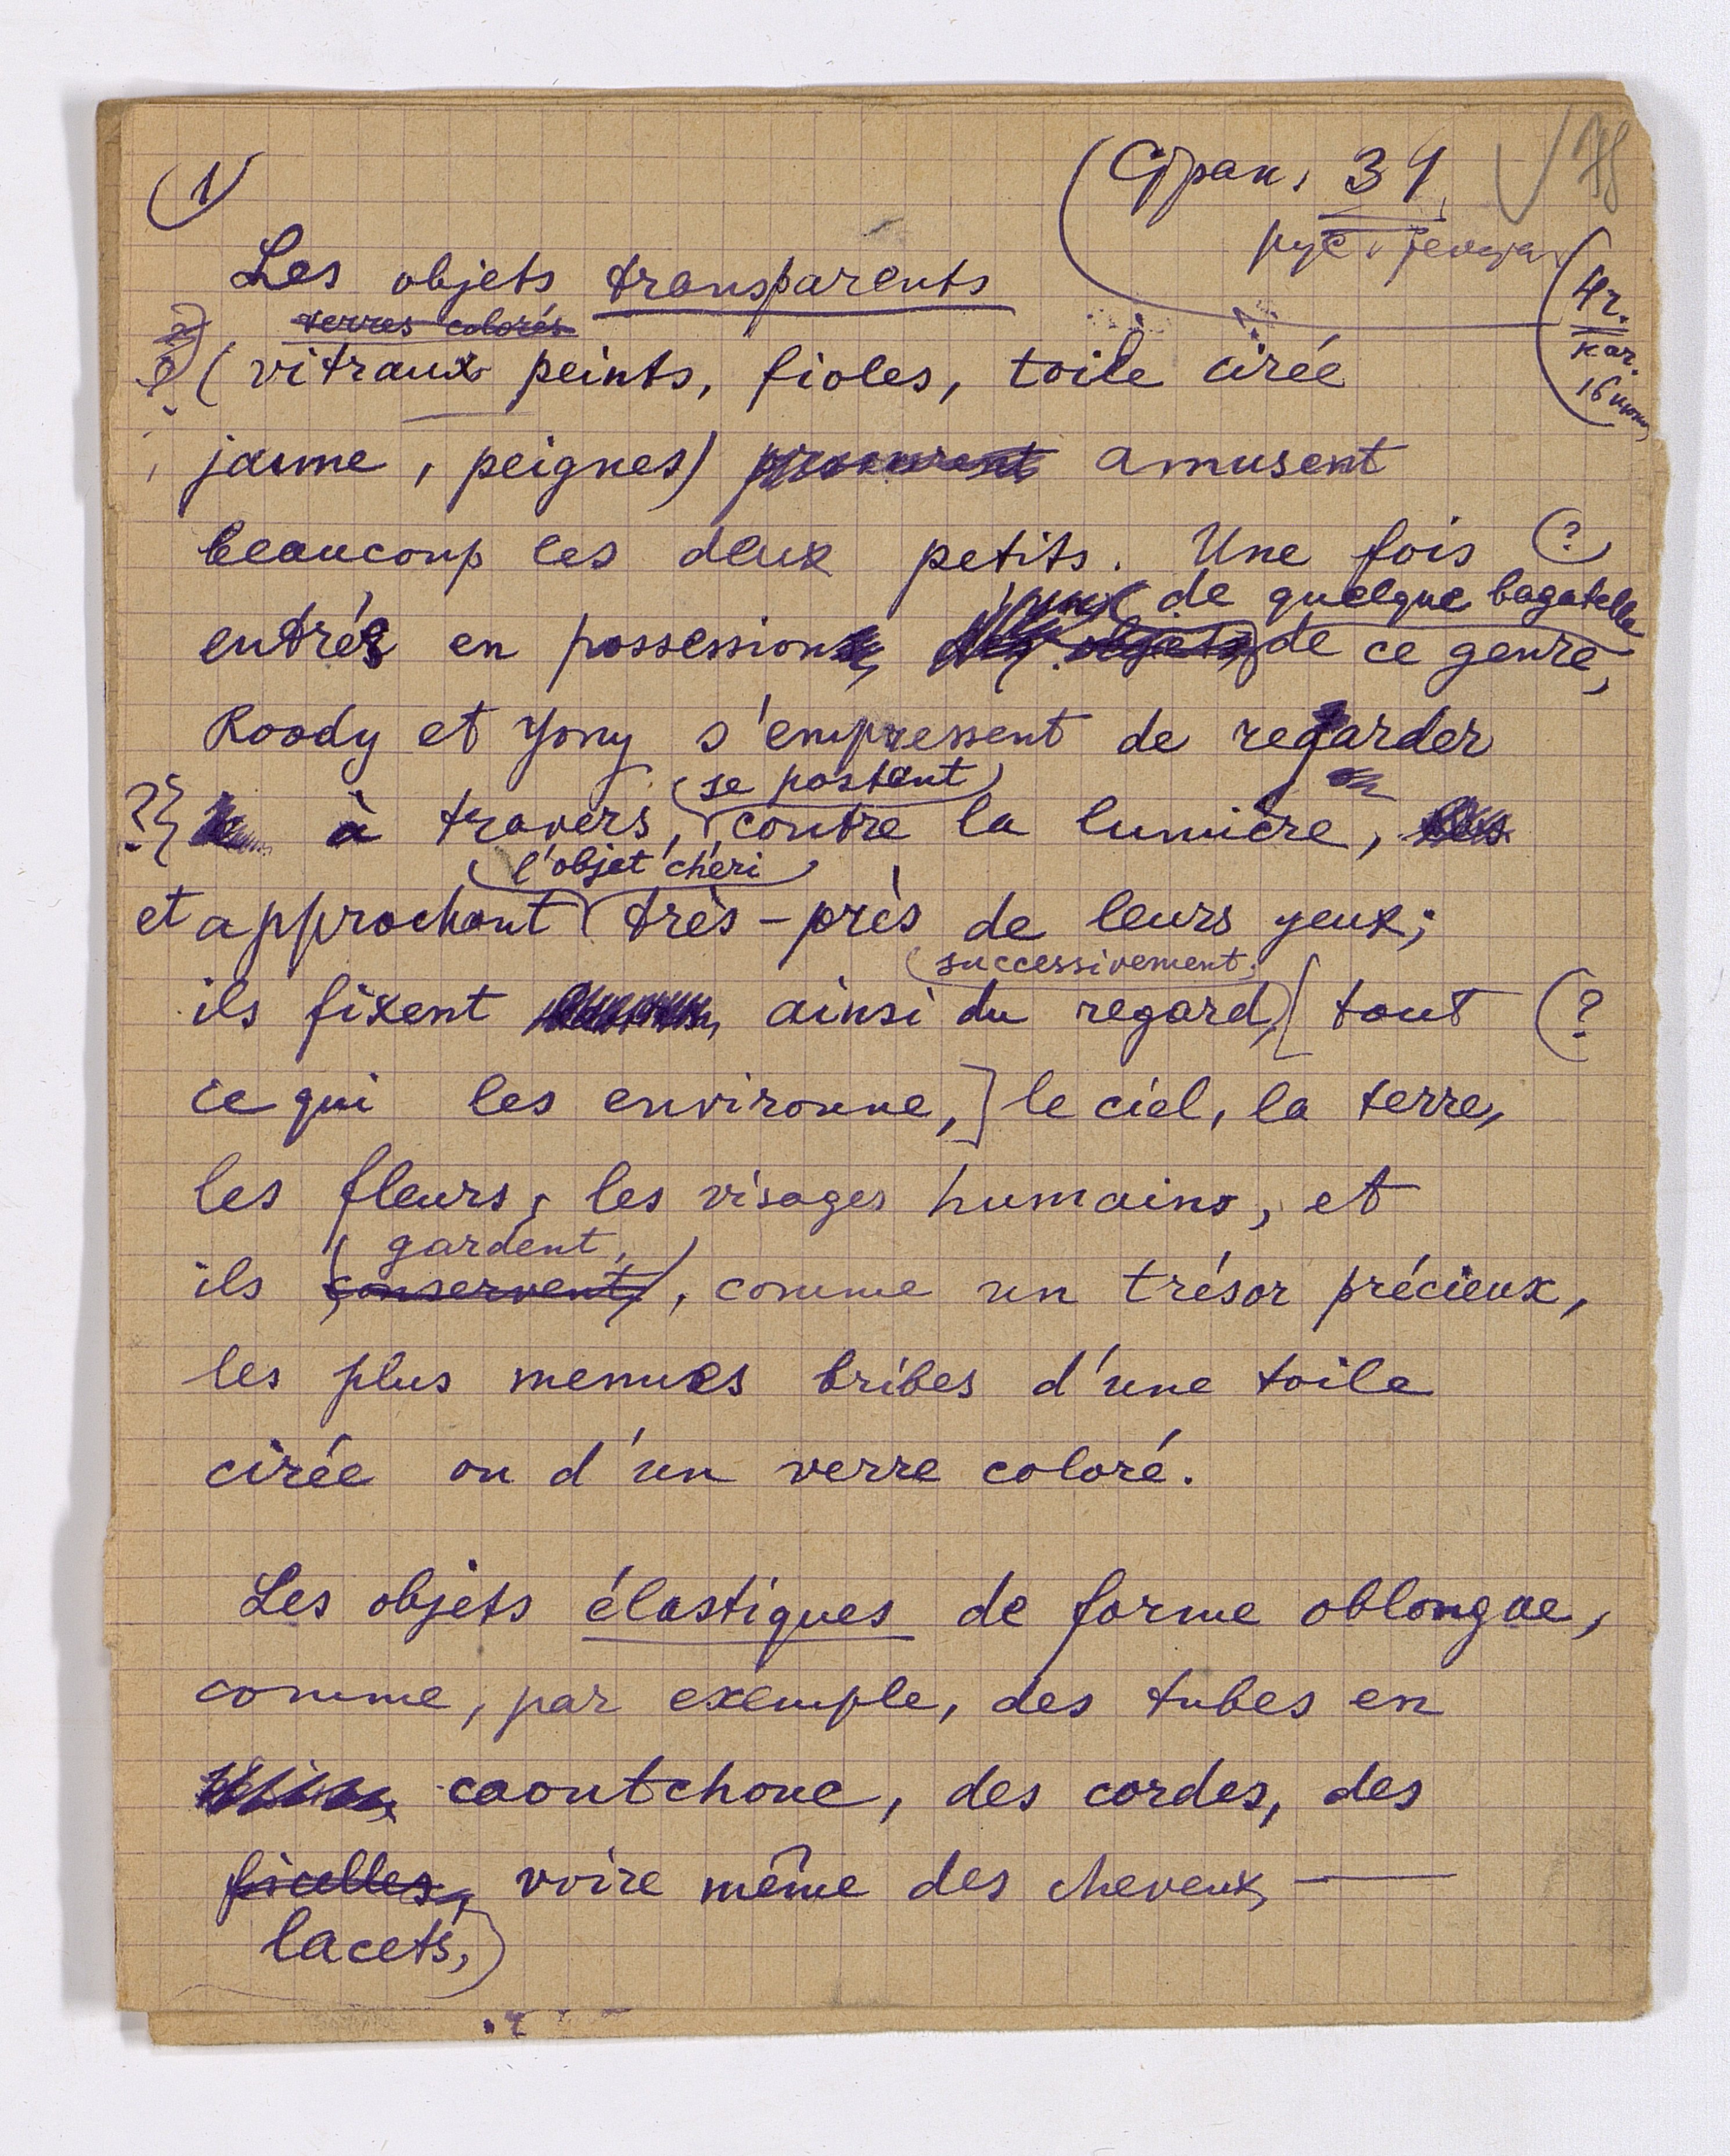 1)
(Стран. 31
78
рус.
(4 г.
16
Les objets transparents
verres colorés
(vitraux peints, fioles, toile cirée
jaune, peignes) procurent amusent
beaucoup les deux petits. Une fois (?)
de quelque bagatelle
entrés en possession des objets de ce genre,
Roody et Yony s'empressent de regarder
se postant
??} à travers, contre la lumière, les
l'objet chéri
et approchant très-près de leurs yeux;
successivement,
ils fixent ainsi du regard, [tout (?
ce qui les environne,] le ciel, la terre,
les fleurs, les visages humains, et
gardent,
ils conservent, comme un trésor précieux,
les plus menues bribes d'une toile
cirée ou d'un verre coloré.
Les objets élastiques de forme oblongue,
comme, par exemple, des tubes en
caoutchouc, des cordes, des
ficelles, voire même des cheveux, —
lacets,)